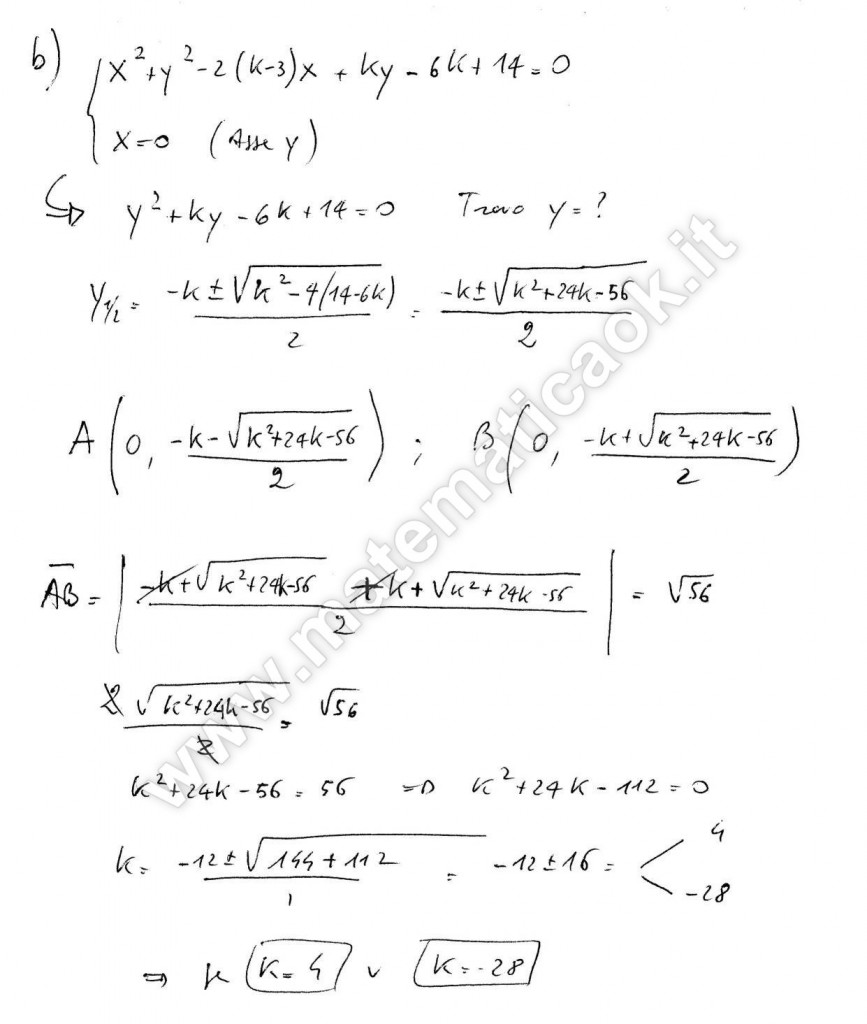 b) { x²+y²-2(k-3)x + ky - 6k + 14 = 0
x=0 (Asse y)
↳ y²+ky-6k+14=0 Trovo y=?
y₁/₂ = (-k±√(k²-4(14-6k)))/2 = (-k±√(k²+24k-56))/2
A(0, (-k-√(k²+24k-56))/2) ; B(0, (-k+√(k²+24k-56))/2)
AB = |(-k+√(k²+24k-56) +k+√(k²+24k-56))/2| = √56
2√(k²+24k-56)/2 = √56
k²+24k-56=56 ⇒ k²+24k-112=0
k= (-12±√(144+112))/1 = -12±16 = < 4
-28
⇒ k K=4 v K=-28
www.matematicaok.it